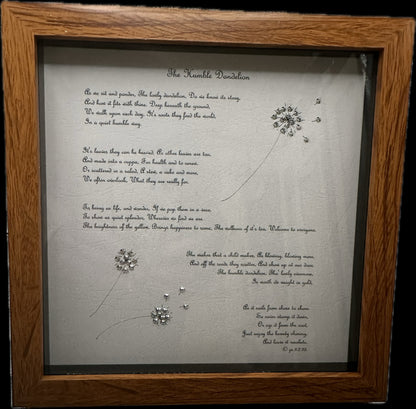 The Humble Dandelion
As we sit and ponder, The lowly dandelion, Do we know its story,
And how it fits with thine. Deep beneath the ground,
We walk upon each day. It's roots they feed the world,
In a quiet humble way.
It's leaves they can be buried, As other leaves are too,
And made into a cuppa, For health and to
Or scattered in a salad, A stew, a cake and more,
We often overlook, What they are really for.
To bring us life, and wonder, If we pop them in a vase,
To show us quiet splendour, Wherever we find
The brightness of the yellow, Brings happiness to some, The wellness of it's tea, Welcome to everyone.
The wishes that a child makes, As blowing, blowing more,
And off the seeds they scatter, And show up at our door.
The humble dandelion, The' lowly common,
Is worth its weight in gold,
As it sails from shore to shore.
So never stamp it down,
Or rip it from the root,
Just enjoy the beauty showing,
And leave it